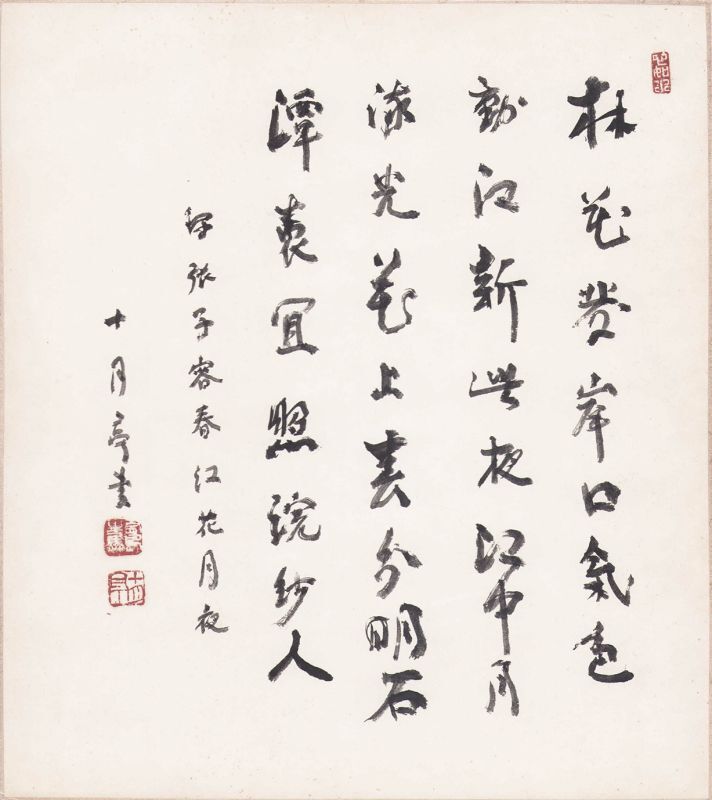 林花發岸口氣色
動江新此夜江中月
流光花上春分明石
潭裏宜照浣紗人
張子容春江花月夜
十月亭書